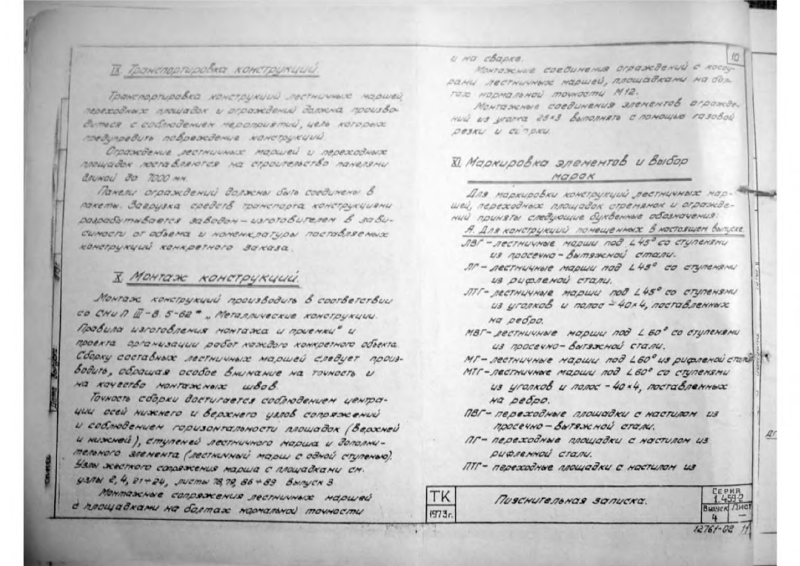 IX Транспортировка конструкций
Транспортировка конструкций лестничных маршей,
переходных площадок и ограждений должна произво-
диться с соблюдением мероприятий, цель которых
предупредить повреждение конструкций.
Ограждение лестничных маршей и переходных
площадок поставляются на строительство панелями
длиной до 7000 мм.
Панели ограждений должны быть соединены в
пакеты. Загрузка средств транспорта конструкциями
разрабатывается заводом-изготовителем в зави-
симости от объема и номенклатуры поставляемых
конструкций конкретного заказа.
X Монтаж конструкций.
Монтаж конструкций производить в соответствии
со СНиП III-В. 5-62* „Металлические конструкции.
Правила изготовления монтажа и приемки" и
проекта организации работ каждого конкретного объекта.
Сборку составных лестничных маршей следует произ-
водить, обращая особое внимание на точность и
на качество монтажных швов.
Точность сборки достигается соблюдением центра-
ции осей нижнего и верхнего узлов сопряжений
и соблюдением горизонтальности площадок (верхней
и нижней), ступеней лестничного марша и дополни-
тельного элемента (лестничный марш с одной ступенью).
Узлы жесткого сопряжения марша с площадками см.
узлы 2, 4, 21÷24, листы 78, 79, 86÷89 Выпуск 3
Монтажные сопряжения лестничных маршей
с площадками на болтах нормальной точности
и на сварке.
Монтажные соединения ограждений с косоу-
рами лестничных маршей, площадками на бол-
тах нормальной точности М12.
Монтажные соединения элементов огражде-
ний из уголка 25×3 выполнять с помощью газовой
резки и сварки.
XI Маркировка элементов и выбор
марок
Для маркировки конструкций лестничных мар-
шей, переходных площадок стремянок и огражде-
ний приняты следующие буквенные обозначения:
А. Для конструкций помещенных в настоящем выпуске
ЛВГ- лестничные марши под ∠45° со ступенями
из просечно-вытяжной стали.
ЛГ- лестничные марши под ∠45° со ступенями
из рифленой стали.
ЛТГ- лестничные марши под ∠45° со ступенями
из уголков и полос -40×4, поставленных
на ребро.
МВГ- лестничные марши под ∠60° со ступенями
из просечно-вытяжной стали.
МГ- лестничные марши под ∠60° из рифленой стали
МТГ- лестничные марши под ∠60° со ступенями
из уголков и полос -40×4, поставленных
на ребро.
ПВГ- переходные площадки с настилом из
просечно-вытяжной стали.
ПГ- переходные площадки с настилом из
рифленной стали.
ПТГ- переходные площадки с настилом из
10
ТК
1973г.
Пояснительная записка.
Серия
1.459-2
Выпуск
4
Лист
—
12761-02 11